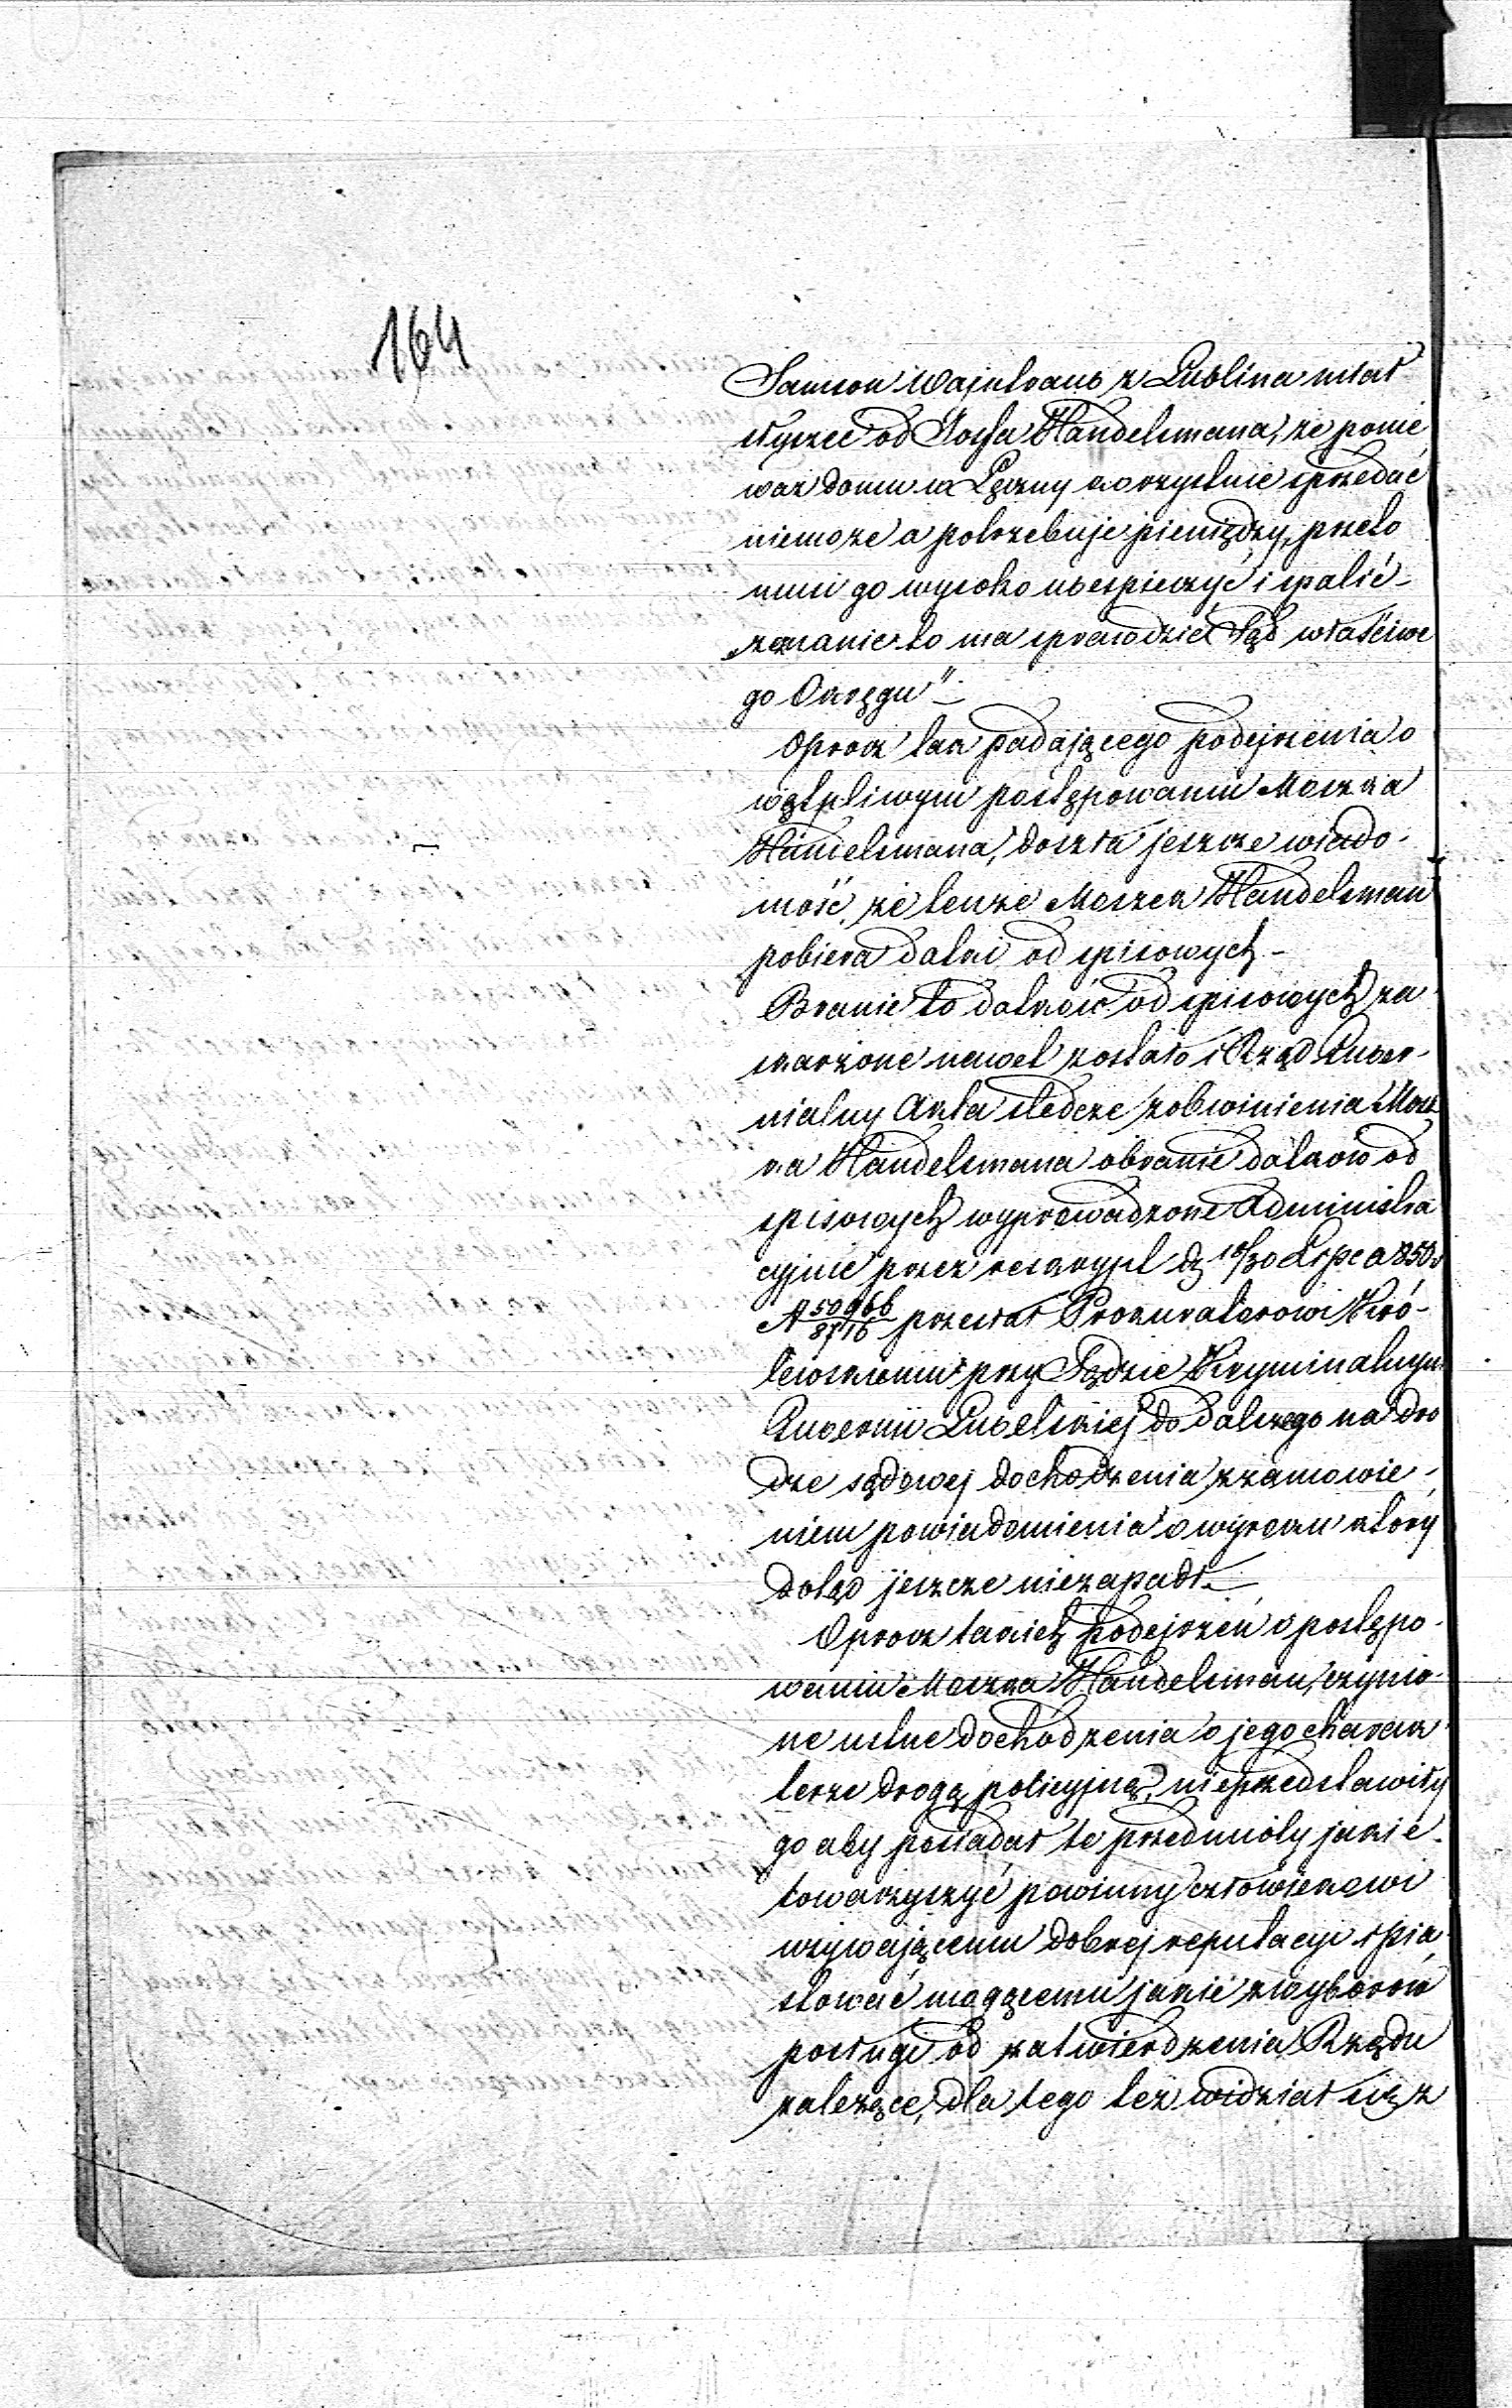 164
Samson Wajnbaub z Lublina miał
słyszeć od Josfa Handelsmana, że ponie
waż domu w Łęczny korzystnie sprzedać
niemoże a potrzebuje pieniędzy, przeto
musi go wysoko ubespieczyć i spalić –
zeznanie to ma sprawdzić Sąd właściwe
go Okręgu" –
Oprocz tak padającego podejrzenia o
wątpliwym postępowaniu Moszka
Handelsmana, doszła jeszcze wiado-
mość, że tenże Moszek Handelsman
pobiera datki od spisowych –
Branie to datków od spisowych za
skarżone nawet zostało i Rząd Guber-
nialny Akta śledcze z obwinienia Mosz
ka Handelsmana o branie datków od
spisowych wyprowadzone Administra
cyjnie przez reskrypt d 18/30 Lipca 850 r
N 50966/8716 przesłał Prokuratorowi Kró-
lewskiemu przy Sądzie Kryminalnym
Gubernii Lubelskiej do dalszego na dro
dze sądowej dochodzenia, z zamowie-
niem powiadomienia o wyroku który
dotąd jeszcze niezapadł. –
Oprocz takich podejrzeń o postępo-
waniu Moszka Handelsman, czynio-
ne ustne dochodzenia o jego charak-
terze drogą policyjną, nieprzedstawiły
go aby posiadał te przedmioty jakie
towarzyszyć powinny człowiekowi
używającemu dobrej reputacyi i pia
stować mogącemu jakie z wyborów
posługi od zatwierdzenia Rządu
zależące, dla tego też widział się z